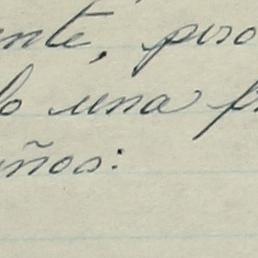 ente, pero
lo una f
años: